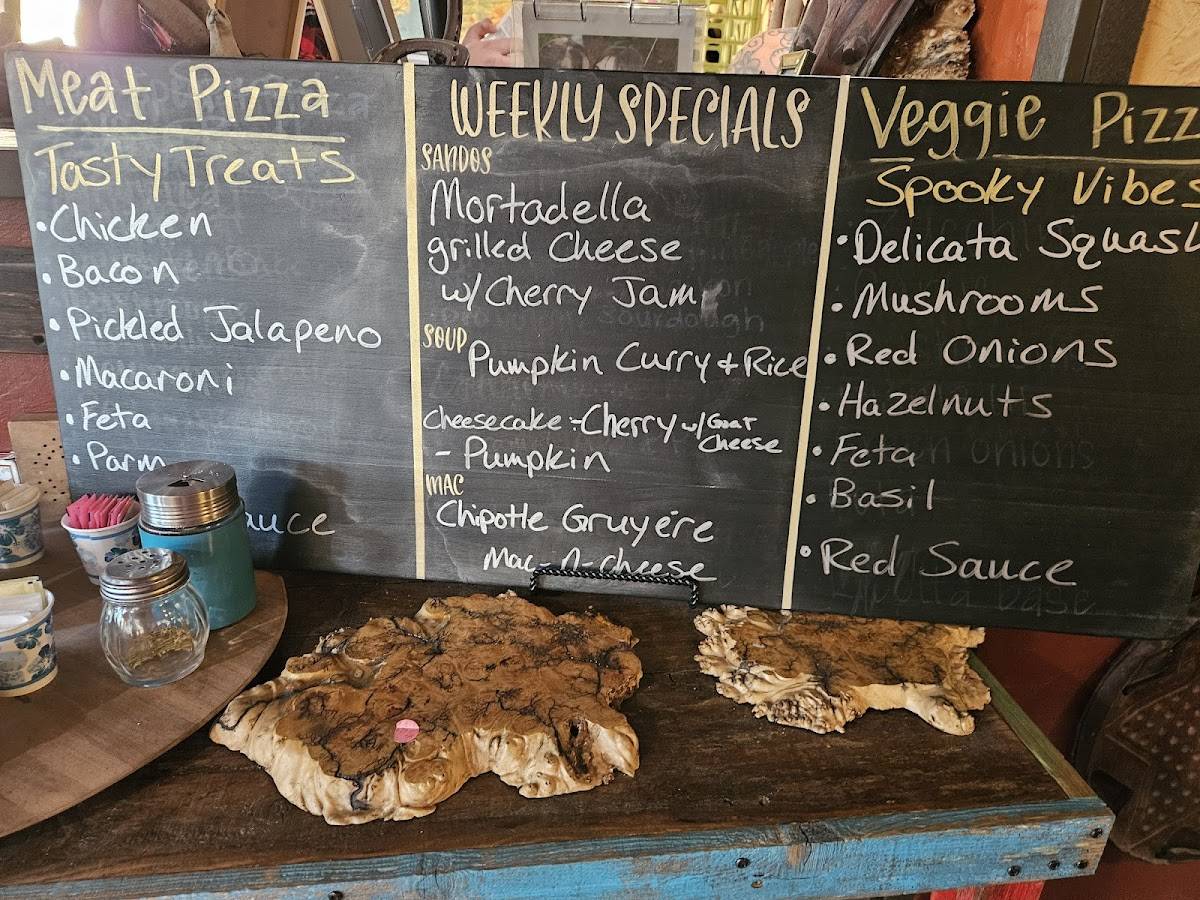 Meat Pizza
Tasty Treats
• Chicken
• Bacon
• Pickled Jalapeno
• Macaroni
• Feta
• Parm
auce
WEEKLY SPECIALS
SANDOS
Mortadella
grilled Cheese
w/ Cherry Jam
SOUP
Pumpkin Curry + Rice
Cheesecake - Cherry w/ Goat Cheese
- Pumpkin
MAC
Chipotle Gruyére
Mac-n-cheese
Veggie Pizz
Spooky Vibes
• Delicata Squash
• Mushrooms
• Red Onions
• Hazelnuts
• Feta
• Basil
• Red Sauce